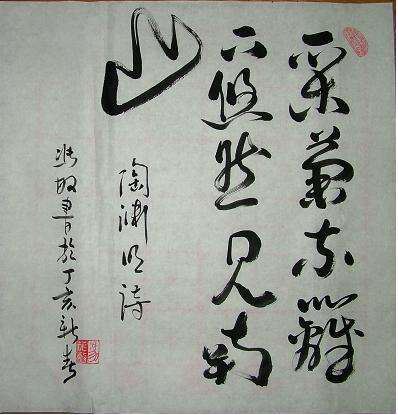 采菊东篱
下悠然见南
山
陶渊明诗
书於丁亥新春